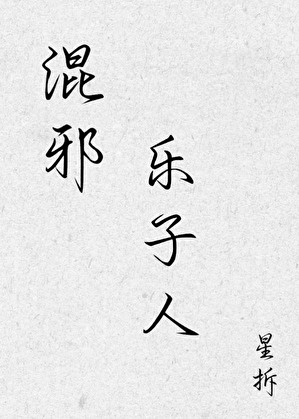 混邪
乐子人
星拆